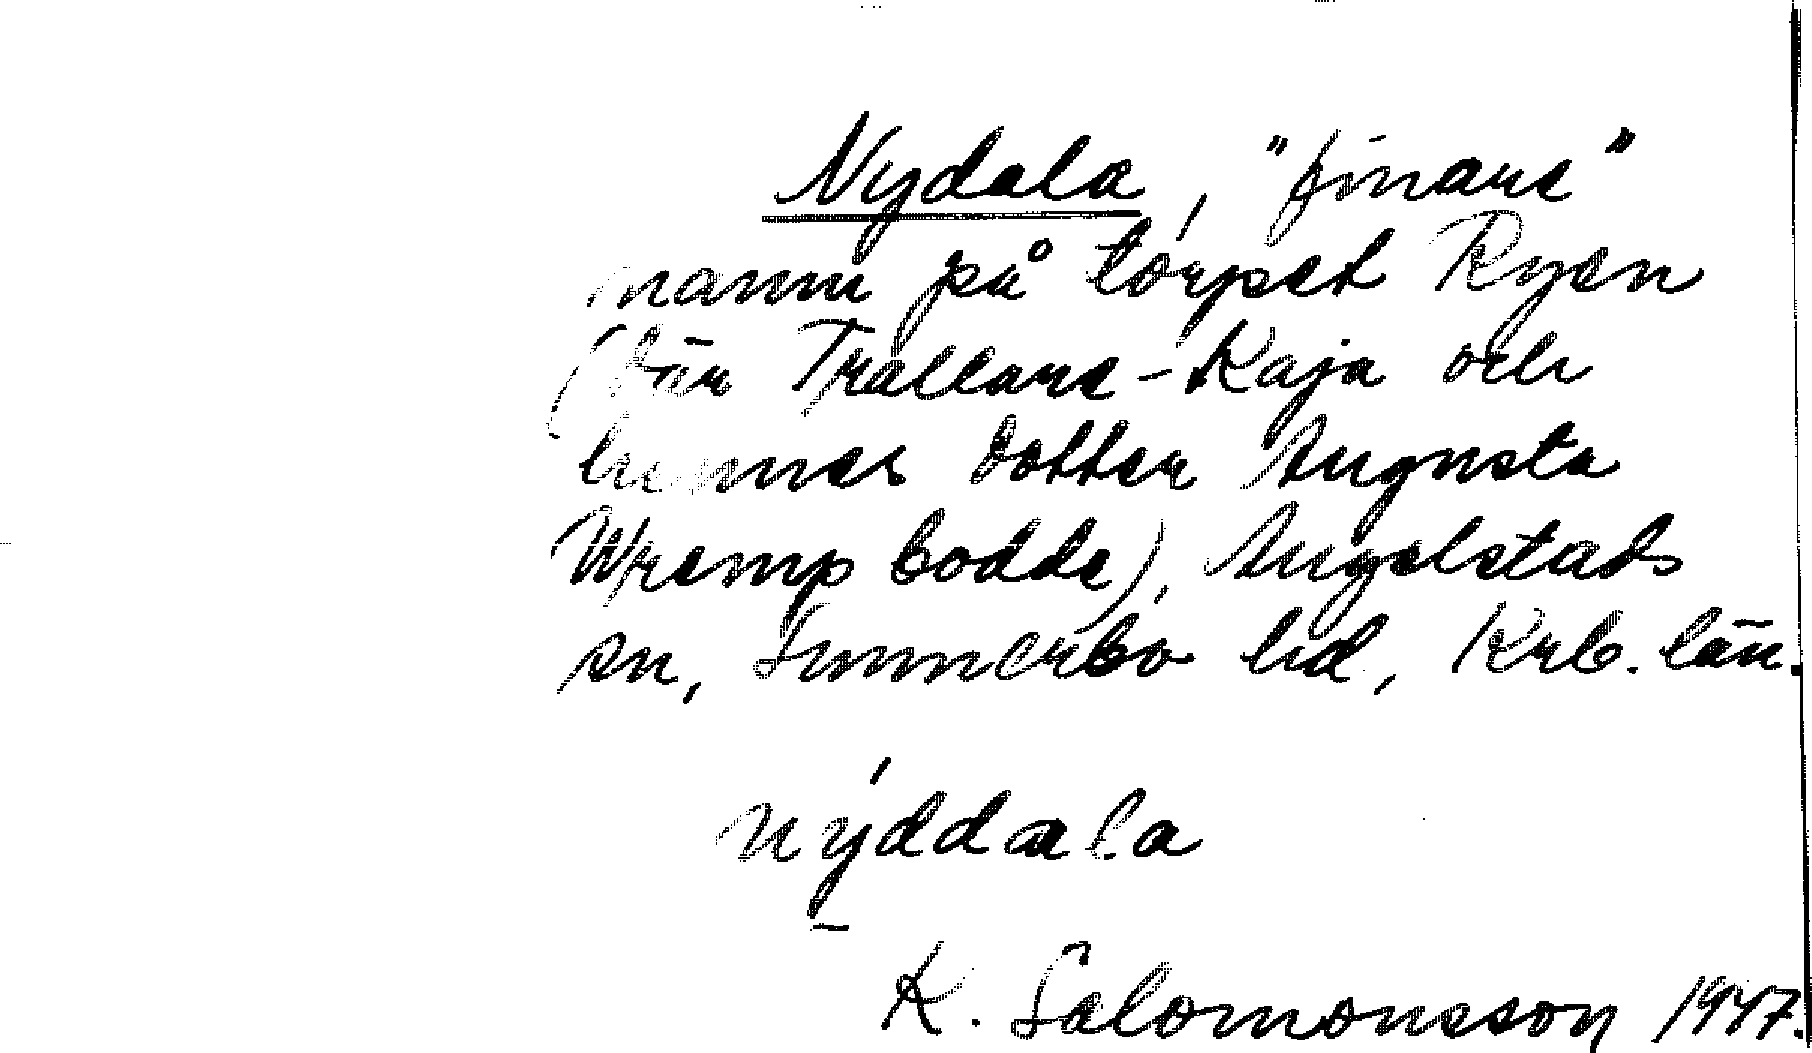 Nydala, "finare"
namn på torpet Ryen
(där Trallare-Kaja och
hennes dotter Augusta
Wremp bodde), Angelstads
sn, Sunnerbo hd, Krb. län.
nýddala
K. Salomonsson 1947.